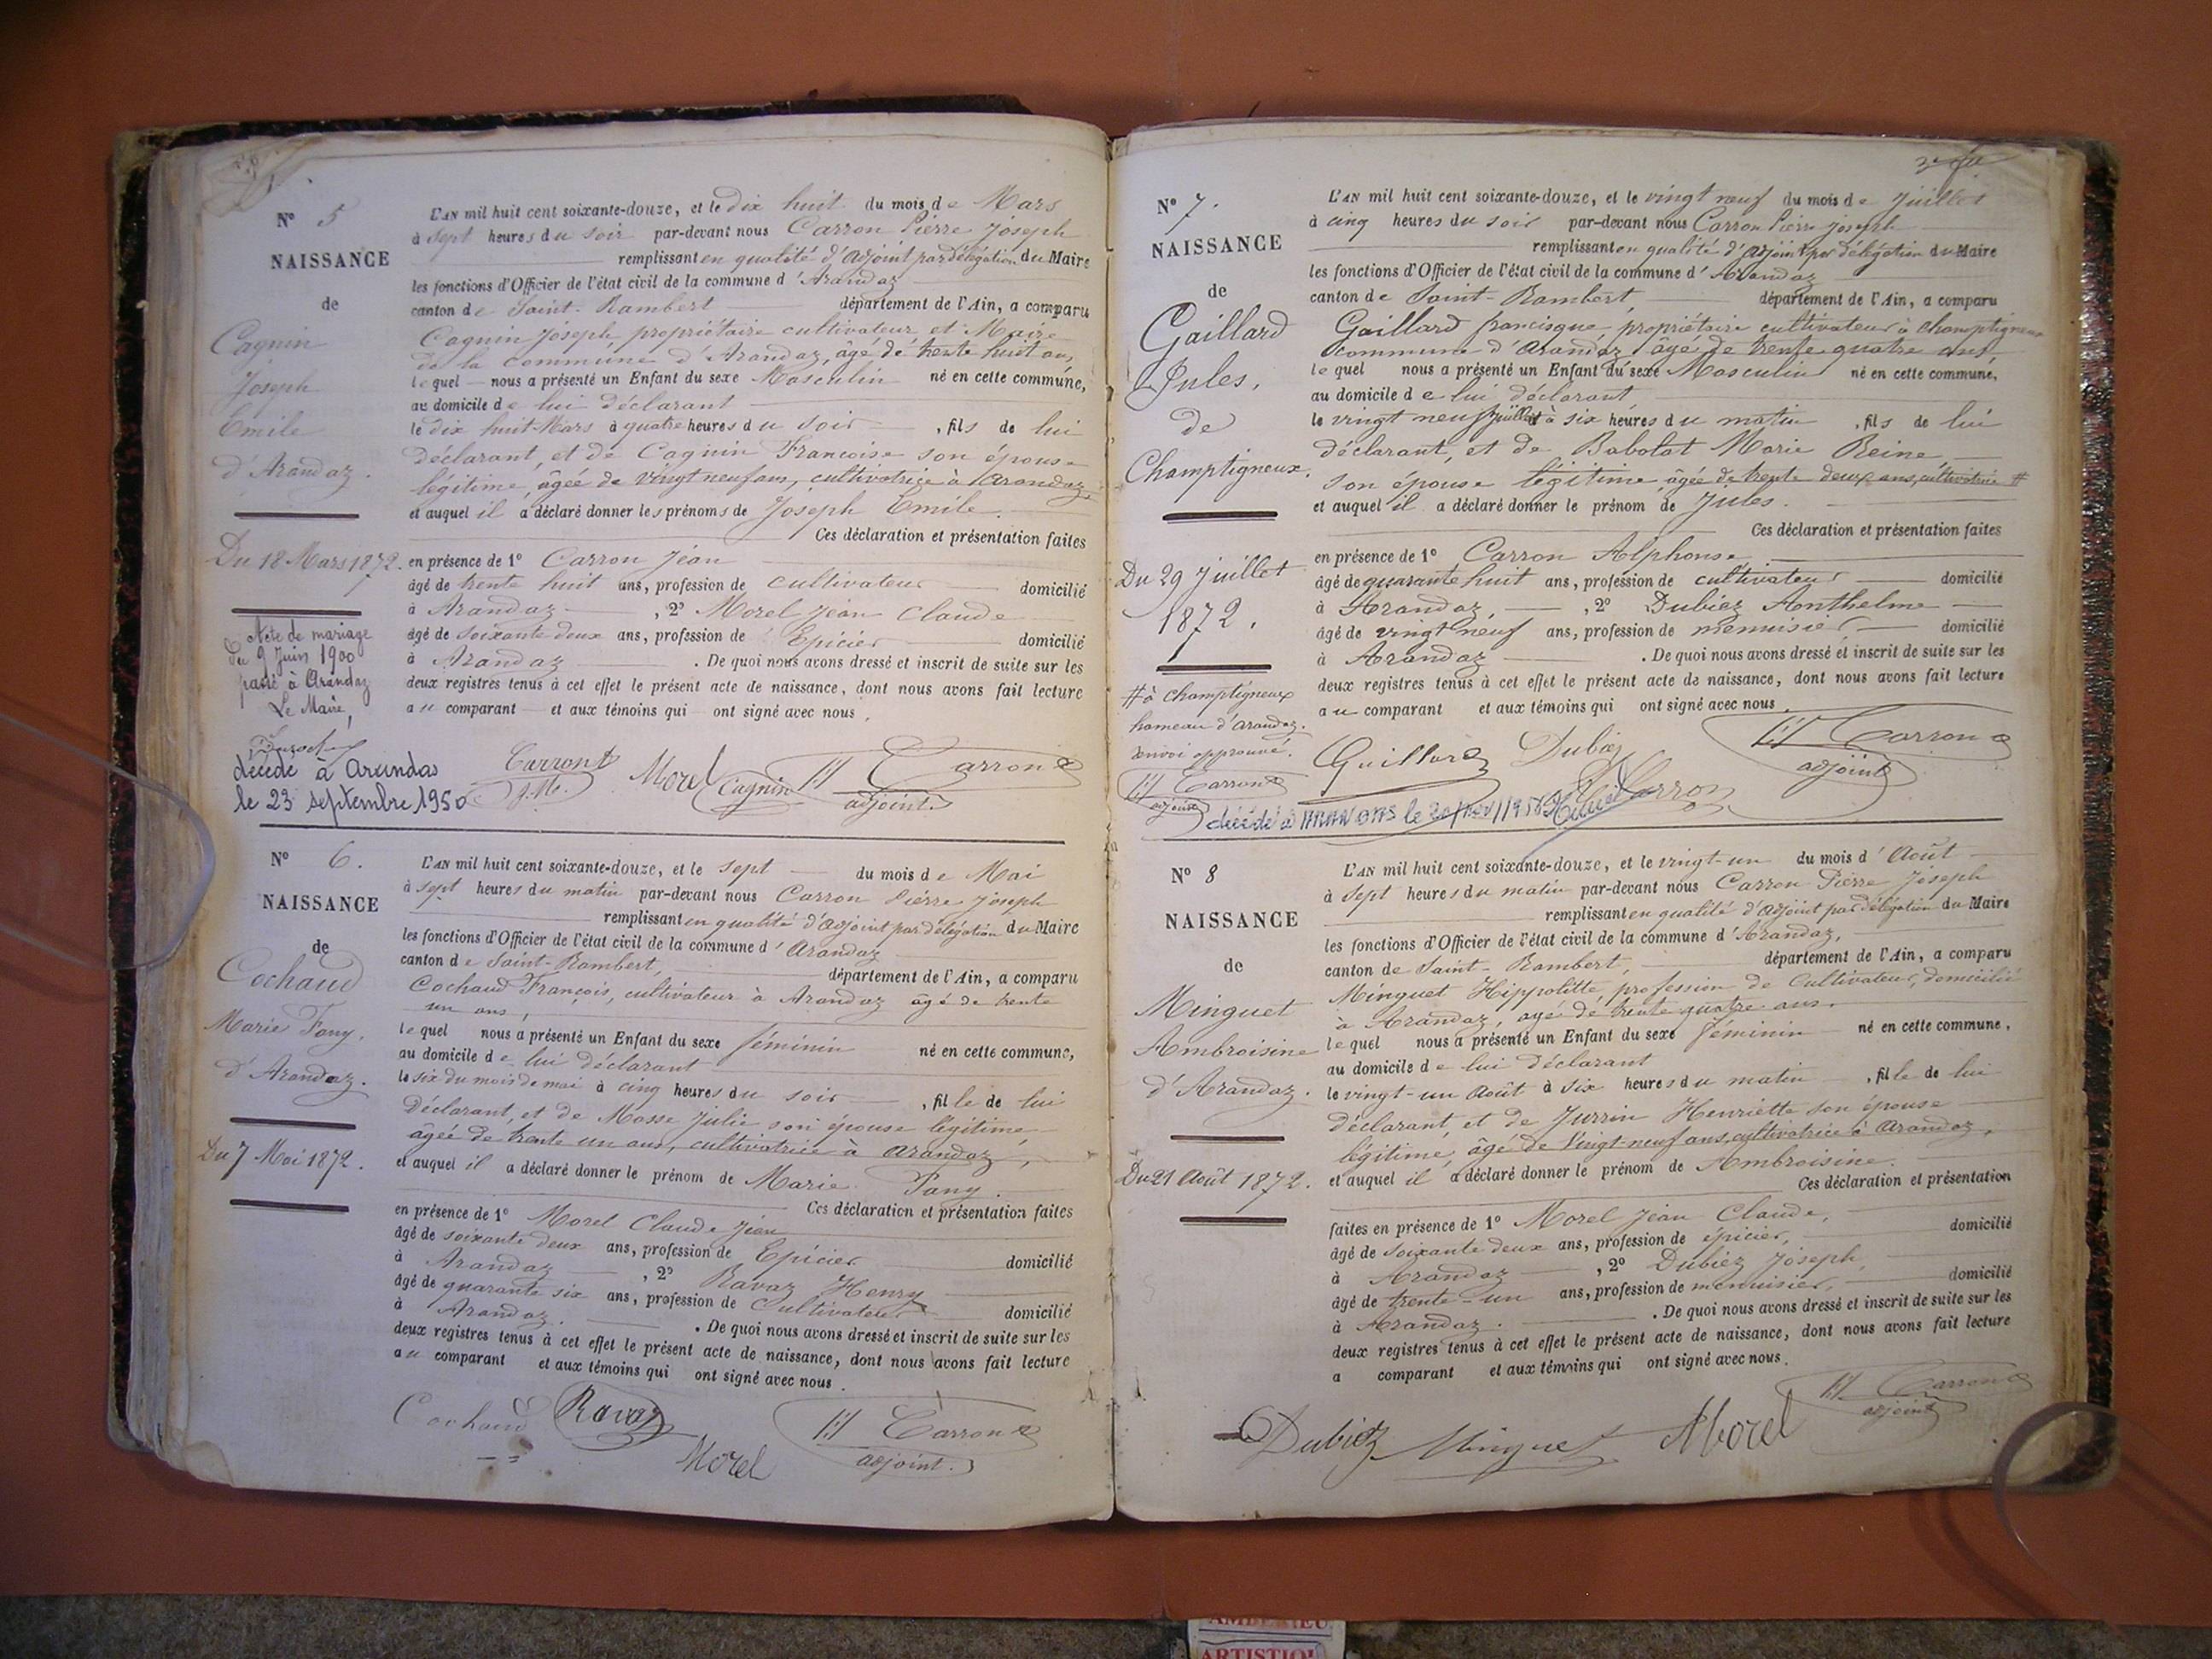 N° 5
NAISSANCE
de
Cagnin
Joseph
Emile
d'Arandaz.
Du 18 Mars 1872.
Acte de mariage
du 9 Juin 1900
passé à Arandaz
Le Maire,
décédé à Arandas
le 23 septembre 1950
L'AN mil huit cent soixante-douze, et le dix huit du mois de Mars
à sept heures du soir par-devant nous Carron Pierre Joseph
remplissant en qualité d'adjoint par délégation du Maire
les fonctions d'Officier de l'état civil de la commune d'Arandaz
canton de Saint-Rambert département de l'Ain, a comparu
Cagnin Joseph propriétaire cultivateur et Maire
de la commune d'Arandaz, âgé de trente huit ans,
lequel nous a présenté un Enfant du sexe Masculin né en cette commune,
au domicile de lui déclarant
le dix huit Mars à quatre heures du soir, fils de lui
déclarant, et de Cagnin Françoise son épouse
légitime, âgée de vingt neuf ans, cultivatrice à Arandaz,
et auquel il a déclaré donner les prénoms de Joseph Emile.
Ces déclaration et présentation faites
en présence de 1° Carron Jean
âgé de trente huit ans, profession de cultivateur domicilié
à Arandaz, 2° Morel Jean Claude
âgé de soixante deux ans, profession de Epicier domicilié
à Arandaz. De quoi nous avons dressé et inscrit de suite sur les
deux registres tenus à cet effet le présent acte de naissance, dont nous avons fait lecture
au comparant et aux témoins qui ont signé avec nous.
Carron Morel Cagnin Carron
adjoint.
N° 6.
NAISSANCE
de
Cochaud
Marie Fany.
d'Arandaz.
Du 7 Mai 1872.
L'AN mil huit cent soixante-douze, et le sept du mois de Mai
à sept heures du matin par-devant nous Carron Pierre Joseph
remplissant en qualité d'adjoint par délégation du Maire
les fonctions d'Officier de l'état civil de la commune d'Arandaz
canton de Saint-Rambert, département de l'Ain, a comparu
Cochaud François, cultivateur à Arandaz âgé de trente
un ans,
lequel nous a présenté un Enfant du sexe féminin né en cette commune,
au domicile de lui déclarant
le six du mois de mai à cinq heures du soir, fille de lui
déclarant, et de Mosse Julie son épouse légitime,
âgée de trente un ans, cultivatrice à Arandaz,
et auquel il a déclaré donner le prénom de Marie Fany.
Ces déclaration et présentation faites
en présence de 1° Morel Claude Jean
âgé de soixante deux ans, profession de Epicier domicilié
à Arandaz, 2° Ravaz Henry
âgé de quarante six ans, profession de Cultivateur domicilié
à Arandaz. De quoi nous avons dressé et inscrit de suite sur les
deux registres tenus à cet effet le présent acte de naissance, dont nous avons fait lecture
au comparant et aux témoins qui ont signé avec nous.
Cochaud Ravaz Carron
Morel adjoint.
N° 7.
NAISSANCE
de
Gaillard
Jules,
de
Champtigneux.
Du 29 Juillet
1872.
# à Champtigneux
hameau d'Arandaz.
renvoi approuvé.
Carron
adjoint
L'AN mil huit cent soixante-douze, et le vingt neuf du mois de Juillet
à cinq heures du soir par-devant nous Carron Pierre Joseph
remplissant en qualité d'adjoint par délégation du Maire
les fonctions d'Officier de l'état civil de la commune d'Arandaz
canton de Saint-Rambert, département de l'Ain, a comparu
Gaillard francisque, propriétaire cultivateur à Champtigneux
commune d'Arandaz âgé de trente quatre ans,
lequel nous a présenté un Enfant du sexe Masculin né en cette commune,
au domicile de lui déclarant
le vingt neuf juillet à six heures du matin, fils de lui
déclarant, et de Babolat Marie Reine,
son épouse légitime âgée de trente deux ans, cultivatrice #
et auquel il a déclaré donner le prénom de Jules.
Ces déclaration et présentation faites
en présence de 1° Carron Alphonse,
âgé de quarante huit ans, profession de cultivateur domicilié
à Arandaz, 2° Dubiez Anthelme
âgé de vingt neuf ans, profession de menuisier domicilié
à Arandaz. De quoi nous avons dressé et inscrit de suite sur les
deux registres tenus à cet effet le présent acte de naissance, dont nous avons fait lecture
au comparant et aux témoins qui ont signé avec nous.
Gaillard Dubiez Carron
adjoint
Carron
décédé à ARANDAS le
N° 8
NAISSANCE
de
Minguet
Ambroisine
d'Arandaz.
Du 21 Août 1872.
L'AN mil huit cent soixante-douze, et le vingt-un du mois d'Août
à sept heures du matin par-devant nous Carron Pierre Joseph
remplissant en qualité d'adjoint par délégation du Maire
les fonctions d'Officier de l'état civil de la commune d'Arandaz,
canton de Saint-Rambert, département de l'Ain, a comparu
Minguet Hippolitte profession de Cultivateur, domicilié
à Arandaz, âgé de trente quatre ans.
lequel nous a présenté un Enfant du sexe féminin né en cette commune,
au domicile de lui déclarant
le vingt-un Août à six heures du matin, fille de lui
déclarant, et de Jurrin Henriette son épouse
légitime, âgé de vingt-neuf ans, cultivatrice à Arandaz,
et auquel il a déclaré donner le prénom de Ambroisine.
Ces déclaration et présentation
faites en présence de 1° Morel Jean Claude,
âgé de soixante deux ans, profession de épicier, domicilié
à Arandaz, 2° Dubiez Joseph,
âgé de trente-un ans, profession de menuisier, domicilié
à Arandaz. De quoi nous avons dressé et inscrit de suite sur les
deux registres tenus à cet effet le présent acte de naissance, dont nous avons fait lecture
a comparant et aux témoins qui ont signé avec nous.
Carron
adjoint
Dubiez Minguet Morel